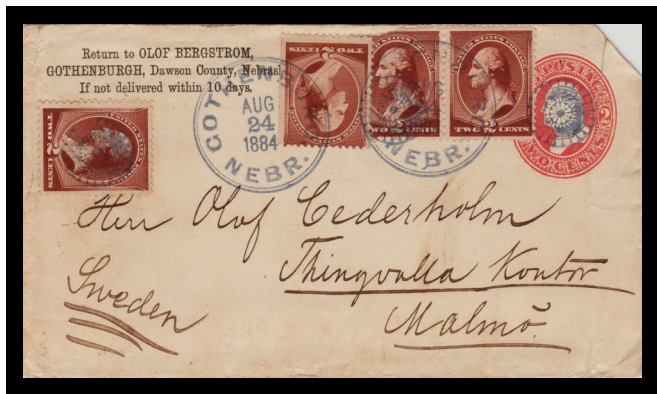 Return to OLOF BERGSTROM,
GOTHENBURGH, Dawson County, Nebras
If not delivered within 10 days.
GOTHENBURG
AUG
24
1884
NEBR.
TWO 2 CENTS
TWO 2 CENTS
TWO 2 CENTS
TWO 2 CENTS
NEBR.
Herr Olof Cederholm
Thingvalla Kontor
Malmö.
Sweden